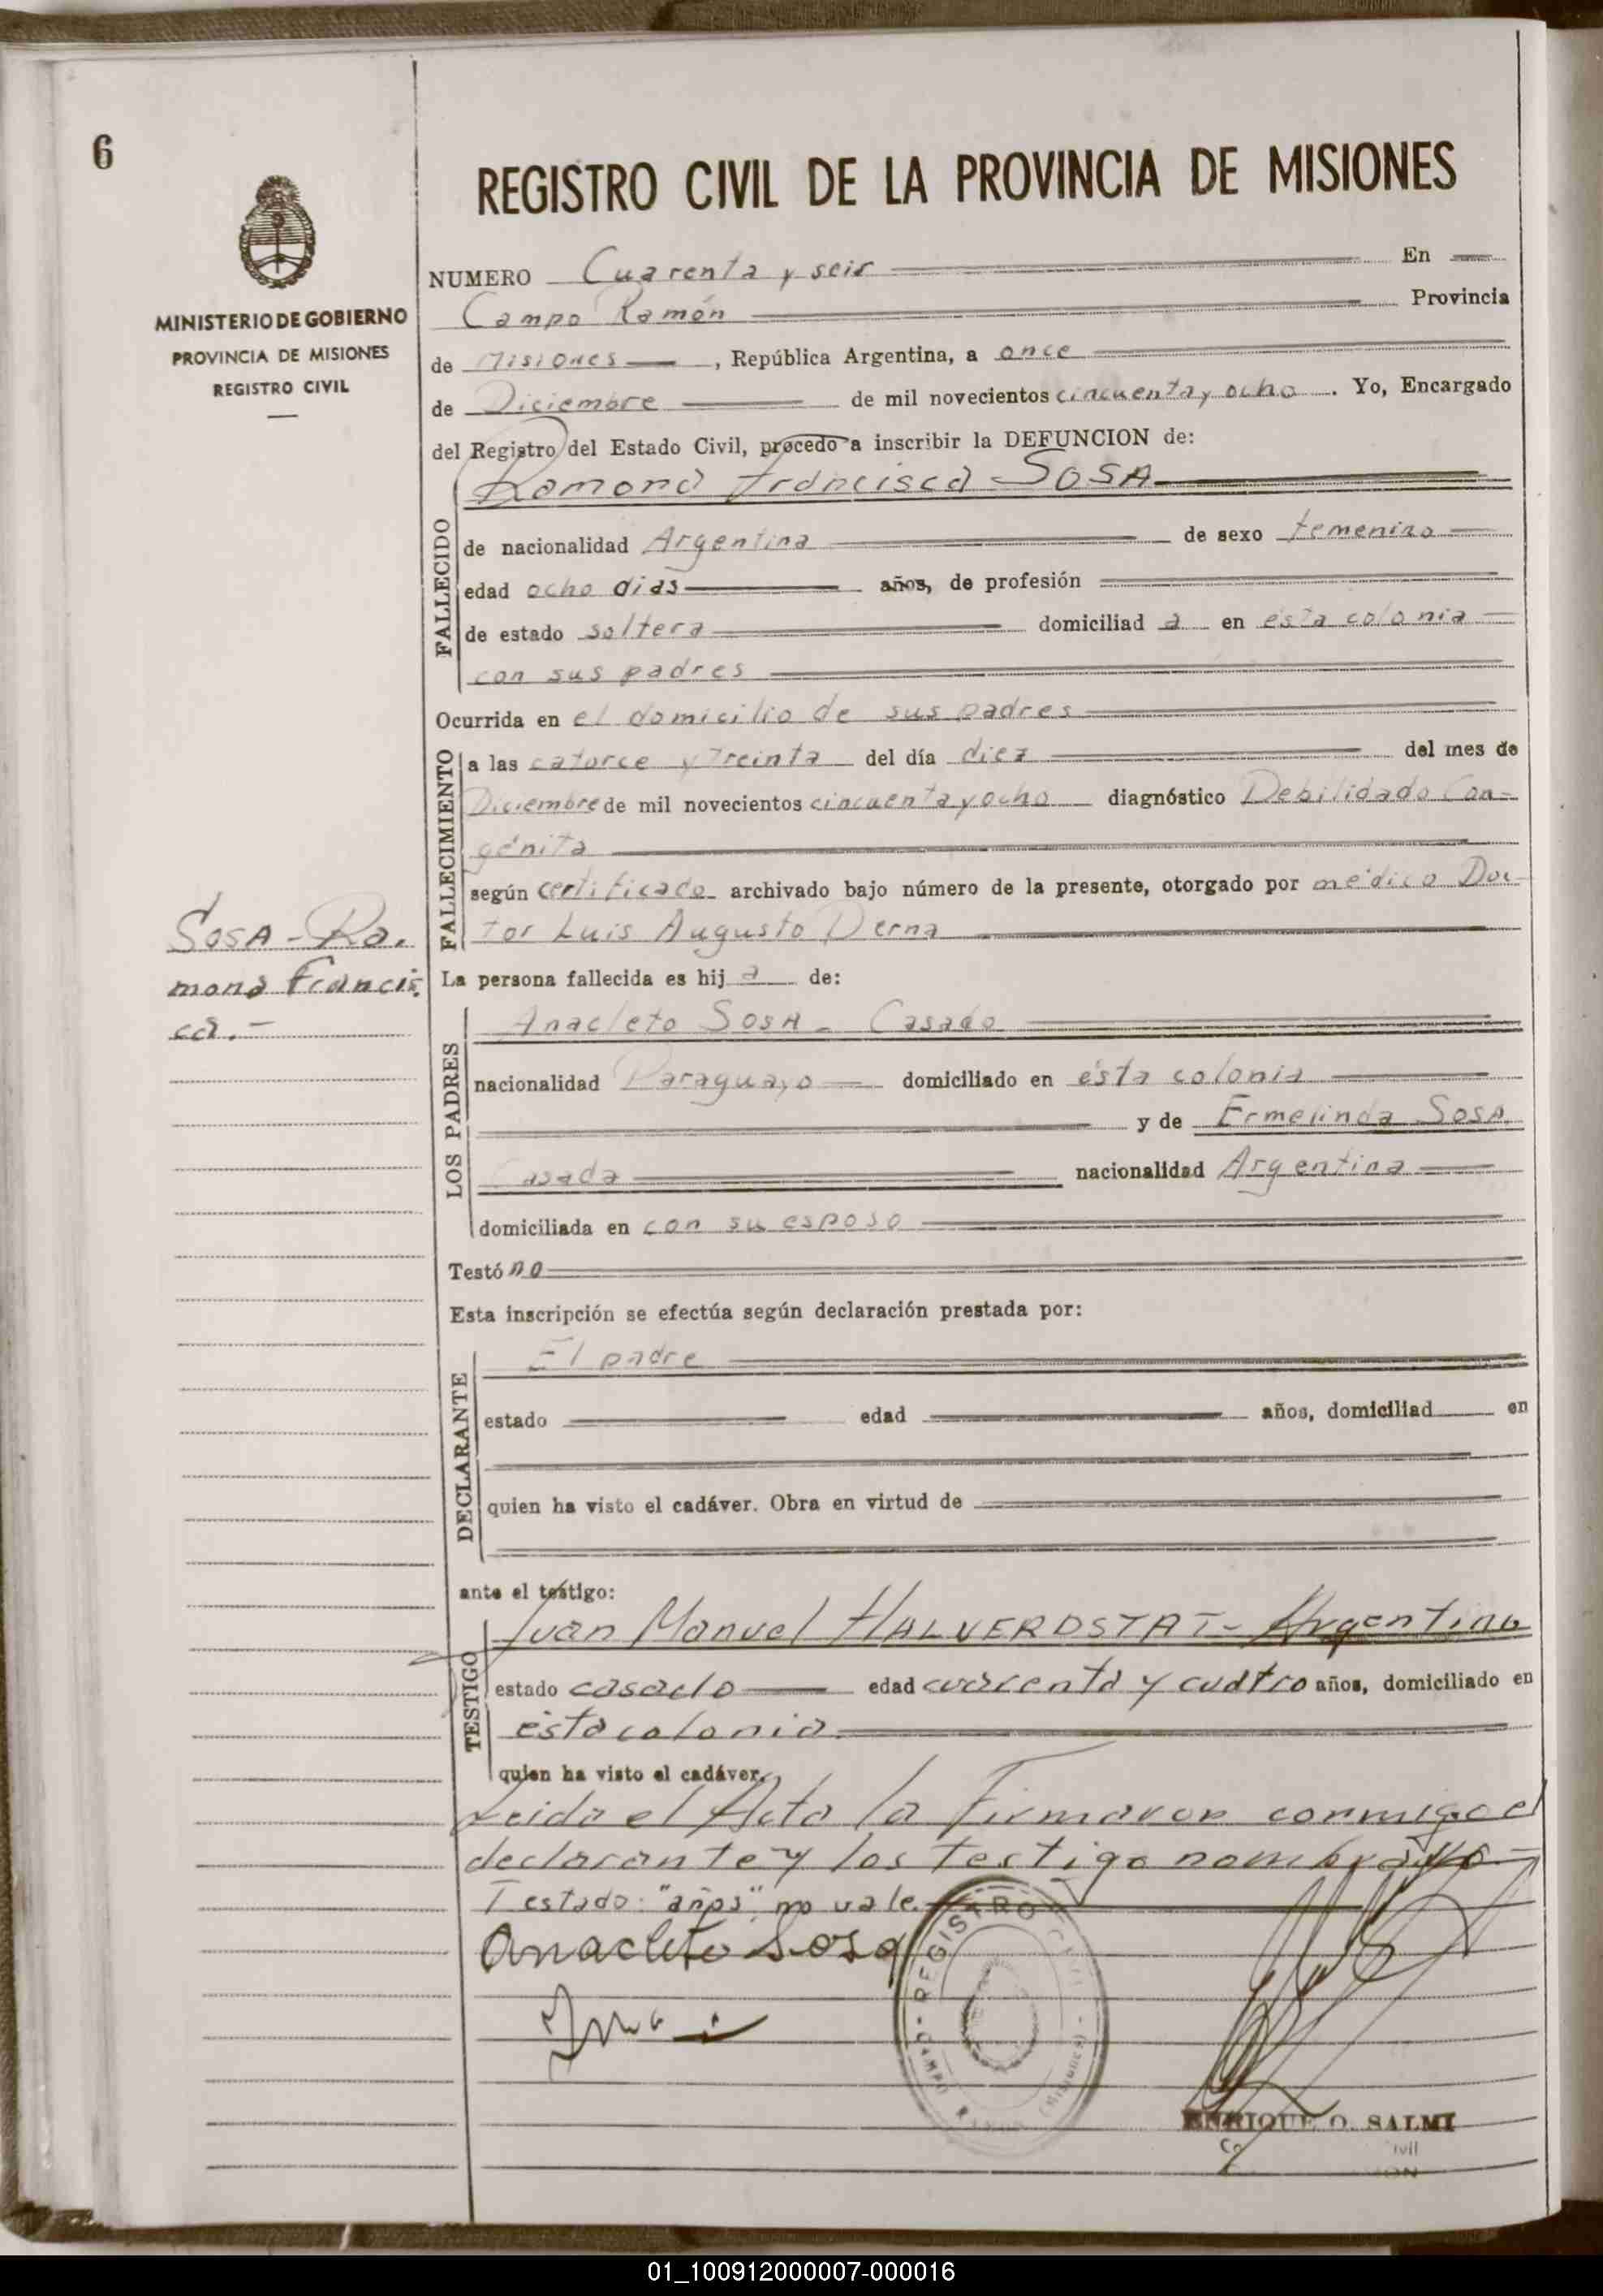 6
REGISTRO CIVIL DE LA PROVINCIA DE MISIONES
MINISTERIO DE GOBIERNO
PROVINCIA DE MISIONES
REGISTRO CIVIL
NUMERO Cuarenta y seis En
Campo Ramón Provincia
de Misiones, República Argentina, a once
de Diciembre de mil novecientos cincuenta y ocho. Yo, Encargado
del Registro del Estado Civil, procedo a inscribir la DEFUNCION de:
Ramona Francisca SOSA
FALLECIDO
de nacionalidad Argentina de sexo femenino
edad ocho dias años, de profesión
de estado soltera domiciliad a en ésta colonia
con sus padres
Ocurrida en el domicilio de sus padres
FALLECIMIENTO
a las catorce y treinta del día diez del mes de
Diciembre de mil novecientos cincuenta y ocho diagnóstico Debilidado Con-
génita
según certificado archivado bajo número de la presente, otorgado por médico Doc-
tor Luis Augusto Derna
SOSA - Ra.
mona Francis
ca.-
La persona fallecida es hij a de:
LOS PADRES
Anacleto SOSA - Casado
nacionalidad Paraguayo domiciliado en ésta colonia
y de Ermelinda SOSA
Casada nacionalidad Argentina
domiciliada en con su esposo
Testó no
Esta inscripción se efectúa según declaración prestada por:
DECLARANTE
El padre
estado edad años, domiciliad en
quien ha visto el cadáver. Obra en virtud de
ante el testigo:
TESTIGO
Juan Manuel HALVERDSTAT - Argentino
estado casado edad cuarenta y cuatro años, domiciliado en
ésta colonia
quien ha visto el cadáver.
Leida el Acta la firmaron conmigo el
declarante y los testigo nombrado.-
Testado: "años" no vale.
Anacleto Sosa
REGISTRO CIVIL - CAMPO RAMON (Misiones)
ENRIQUE O. SALMI
01_100912000007-000016